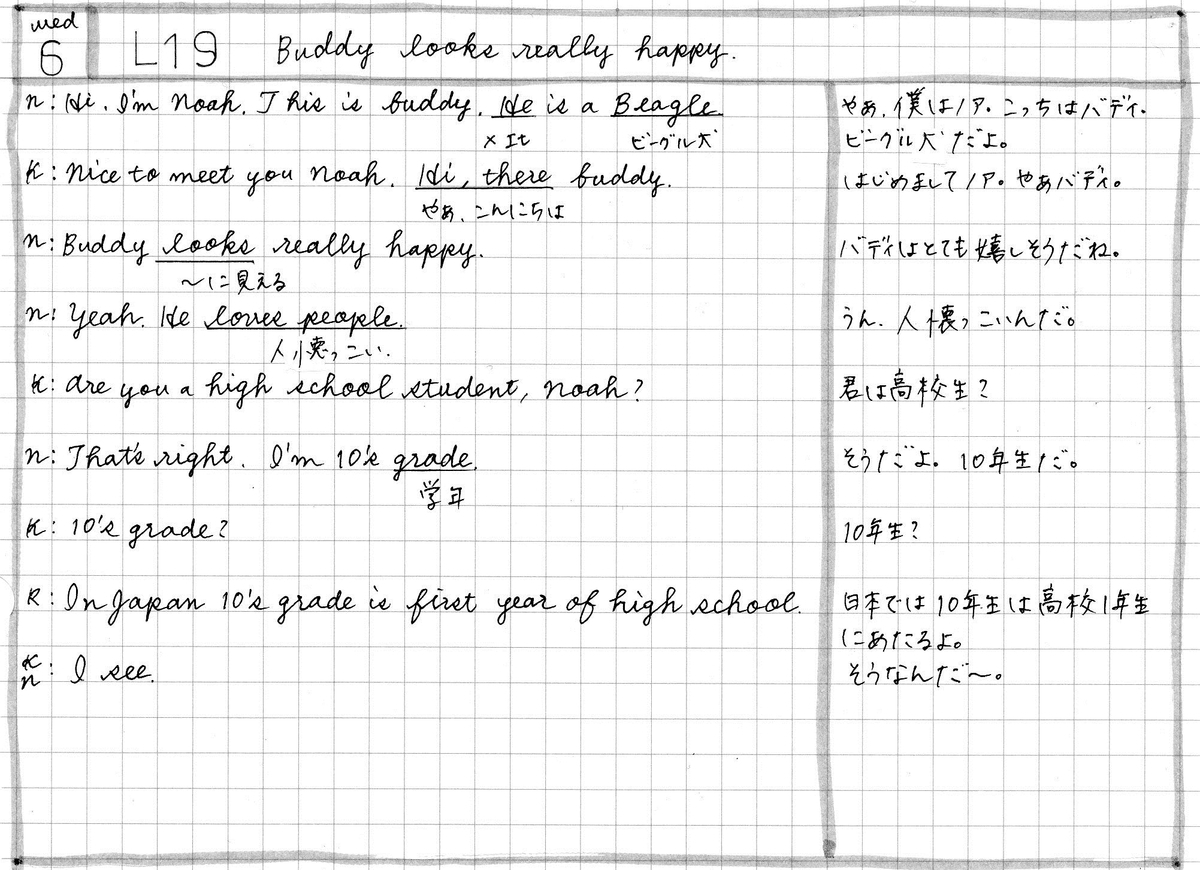 wed
6
L19 Buddy looks really happy.
n: Hi. I'm noah. This is buddy. He is a Beagle
×It ビーグル犬
やあ、僕はノア。こっちはバディ。
ビーグル犬だよ。
K: nice to meet you noah. Hi, there buddy.
やあ、こんにちは
はじめましてノア。やあバディ。
n: Buddy looks really happy.
〜に見える
バディはとても嬉しそうだね。
n: Yeah. He loves people.
人懐っこい.
うん、人懐っこいんだ。
K: are you a high school student, noah?
君は高校生?
n: That's right. I'm 10's grade.
学年
そうだよ。10年生だ。
K: 10's grade?
10年生?
R: In Japan 10's grade is first year of high school.
日本では10年生は高校1年生
にあたるよ。
K
n: I see.
そうなんだ〜。